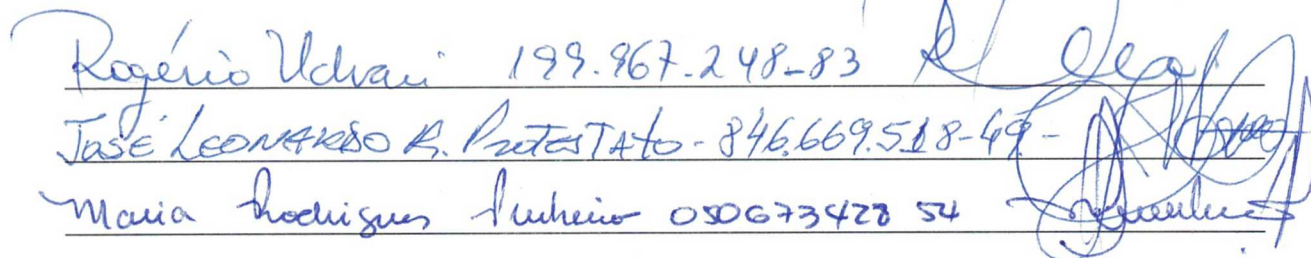 Rogério Udvari 199.967.248-83
JOSÉ LEONARDO R. PROTESTATO - 846.669.518-49-
Maria Rodrigues Pinheiro 05067342854